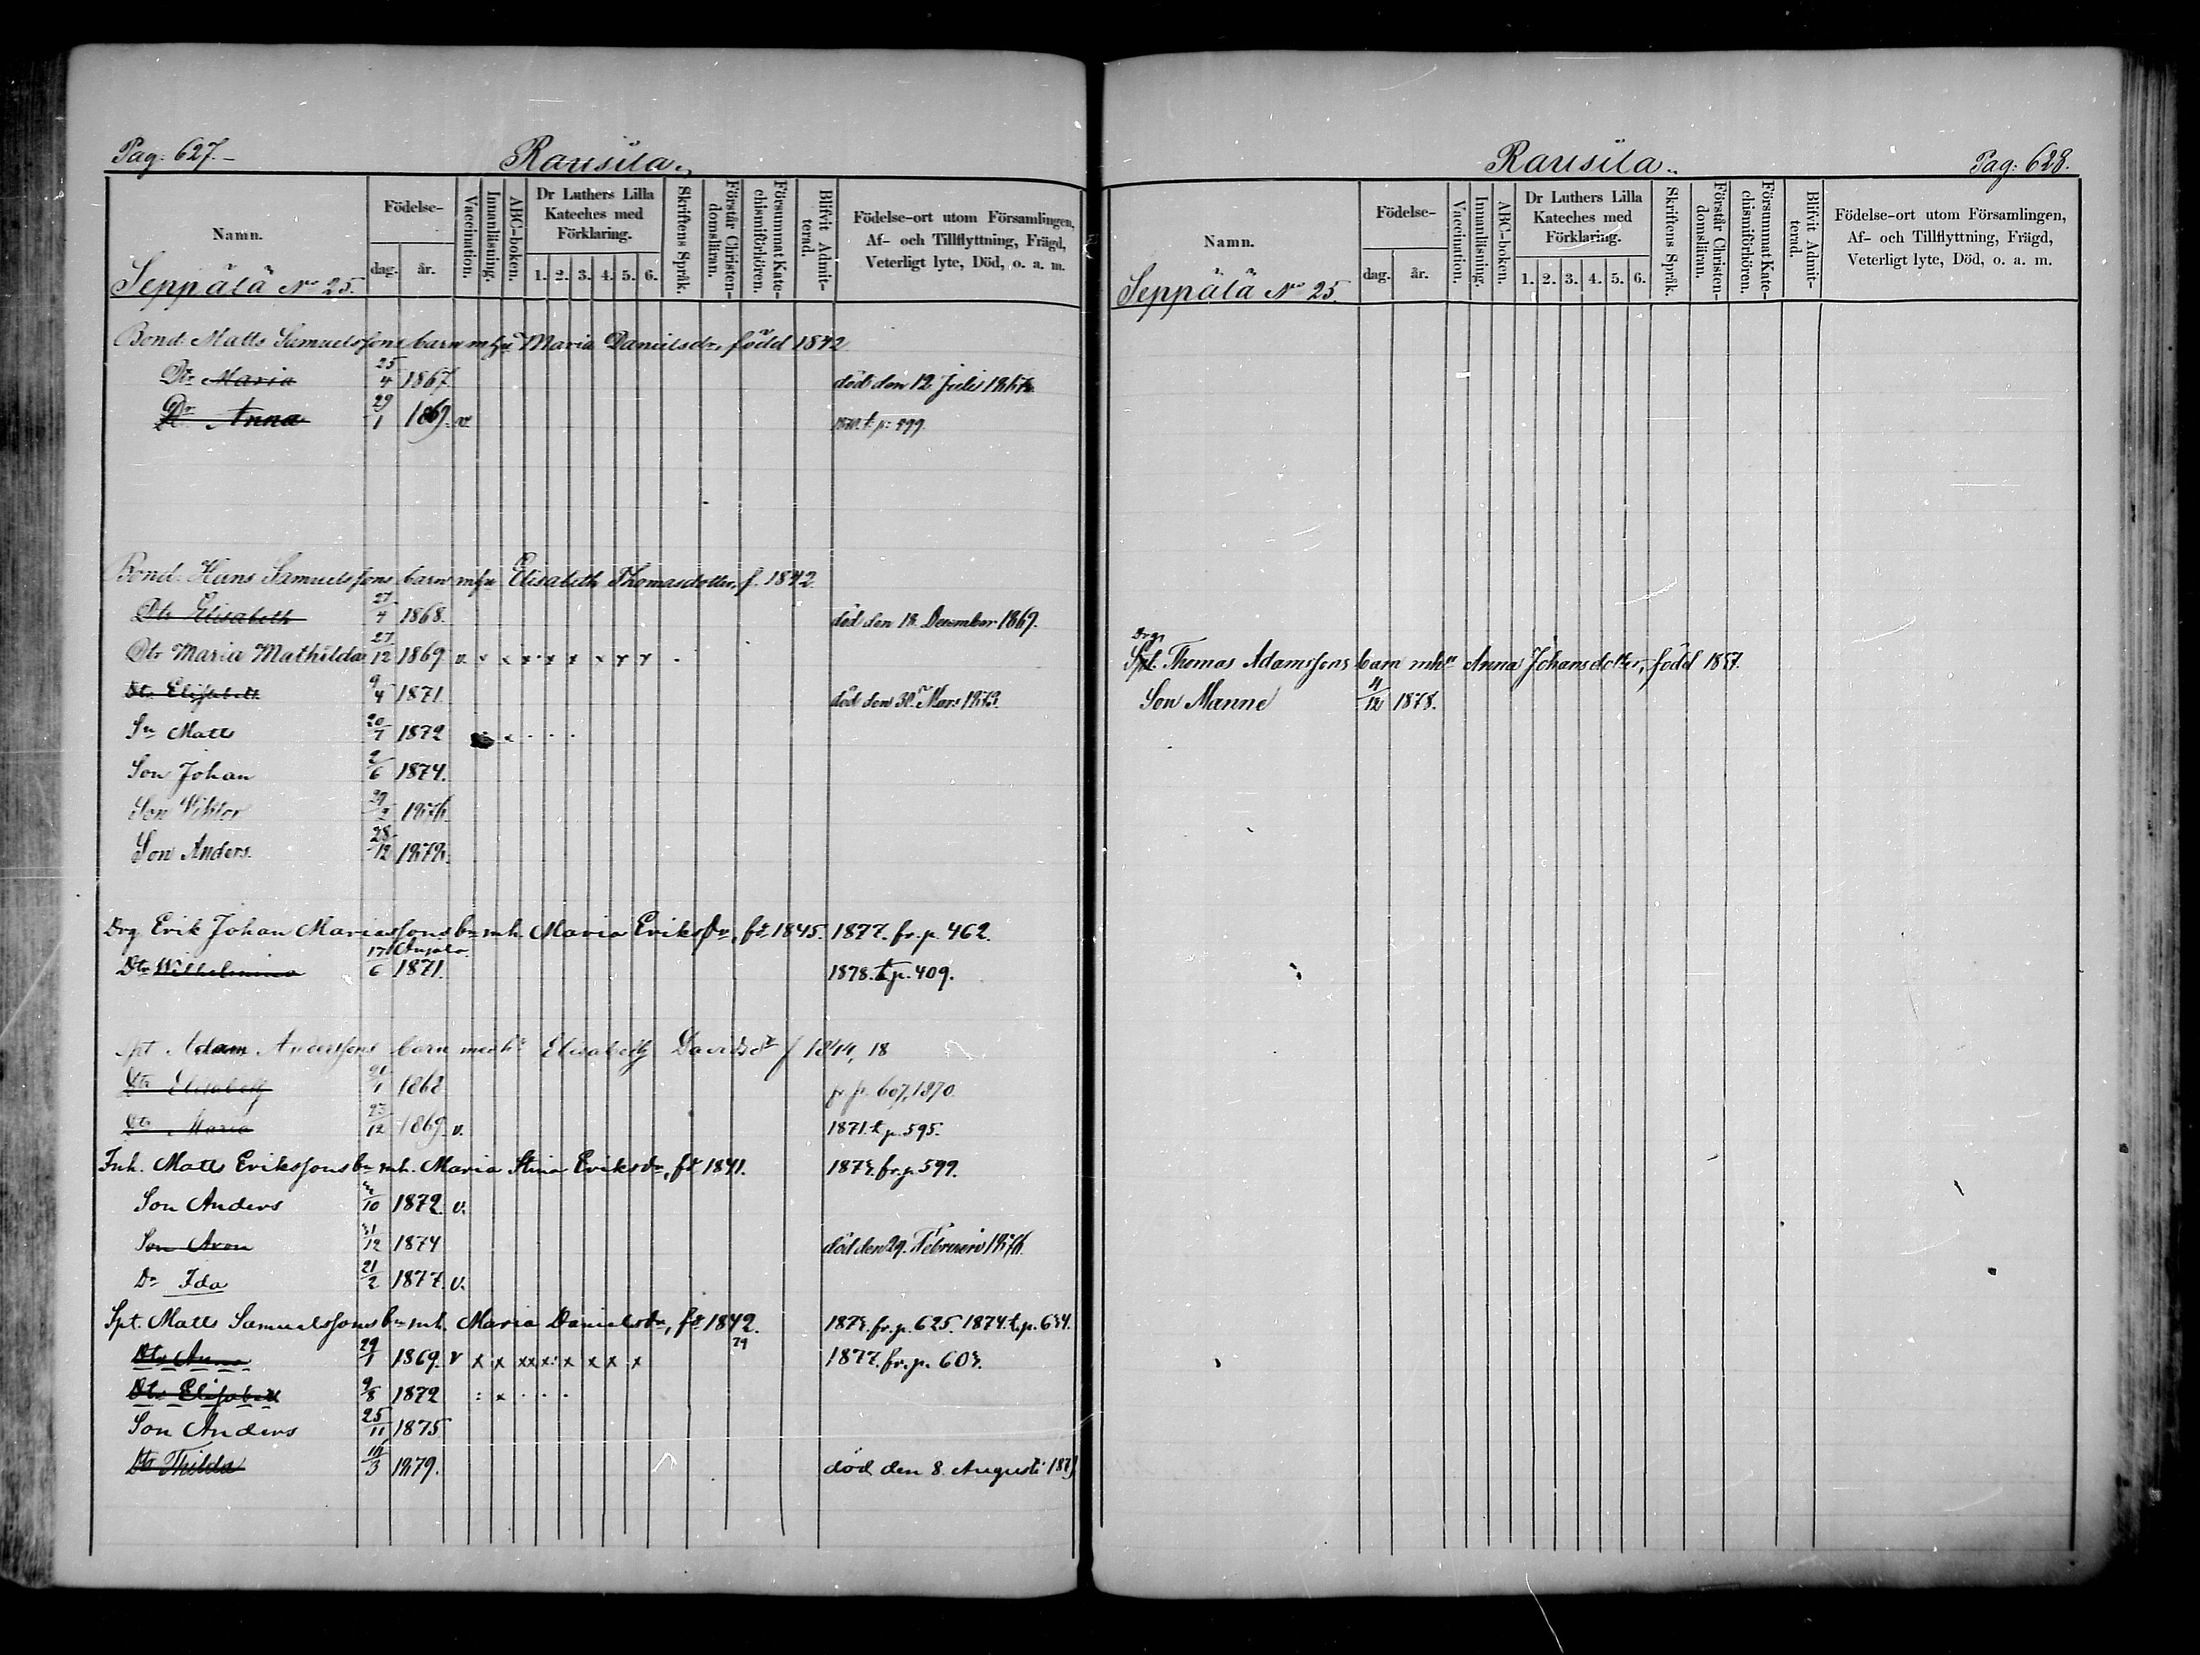 Pag: 627.
Rausila.
Namn.
Födelse-
dag. år.
Vaccination.
Innanläsning.
ABC-boken.
Dr Luthers Lilla Kateches med Förklaring.
1. 2. 3. 4. 5. 6.
Skriftens Språk.
Förstår Christen-domsläran.
Försummat Kate-chismiförhören.
Blifvit Admit-terad.
Födelse-ort utom Församlingen,
Af- och Tillflyttning, Frägd,
Veterligt lyte, Död, o. a. m.
Seppälä No 25.
Bond. Matts Samuelssons barn m hu Maria Danielsdr, född 1842
Dtr Maria 25/4 1867. död den 12 Julii
Dr Anna 29/1 1869. v. t. p: 499.
Bond. Hans Samuelssons barn m hu Elisabeth Thomasdotter, f. 1842
Dtr Elisabeth 27/4 1868. död den 18. December 1869.
Dtr Maria Mathilda 27/12 1869 v. x x x x x x x x
Dtr Elisabeth 9/4 1871. död den 30 Mars 1873.
Sn Matts 20/7 1872
Son Johan 2/6 1874.
Son Viktor 29/2 1876.
Son Anders. 28/12 1878.
Drg Erik Johan Mariassons bn m h. Maria Eriksdr, fd 1845. 1877. fr. p. 462.
Anjala.
Dtr Wilhelmina 17/6 1871. 1878. t. p. 409.
Spt Adam Anderssons barn med h Elisabeth Davidsdr f 1844, 18
Dtr Elisabeth 21/1 1868 fr p. 607, 1870.
Dtr Maria 23/12 1869. v. 1871. t. p. 595.
Inh. Matts Erikssons bn m h. Maria Stina Eriksdr, fd 1841. fr. p. 599.
Son Anders /10 1872. v.
Son Aron 31/12 1874 död den 29. Februari 1876.
Dr Ida 21/2 1877. v.
Spt. Matts Samuelssons bn m h. Maria Danielsdr, fd 1842. fr. p. 625. 1874. t. p. 634.
Dtr Anna 29/1 1869. v x x x x x x x x x 79 1877. fr. p. 603.
Dtr Elisabeth 9/8 1872 : x . . .
Son Anders 25/11 1875
Dtr Thilda 16/3 1879. död den 8. Augusti 1879
Rausila.
Pag: 628.
Namn.
Födelse-
dag. år.
Vaccination.
Innanläsning.
ABC-boken.
Dr Luthers Lilla Kateches med Förklaring.
1. 2. 3. 4. 5. 6.
Skriftens Språk.
Förstår Christen-domsläran.
Försummat Kate-chismiförhören.
Blifvit Admit-terad.
Födelse-ort utom Församlingen,
Af- och Tillflyttning, Frägd,
Veterligt lyte, Död, o. a. m.
Seppälä No 25.
Drg
Spt. Thomas Adamssons barn m hu Anna Johansdotter, född 1857.
Son Manne 4/12 1878.